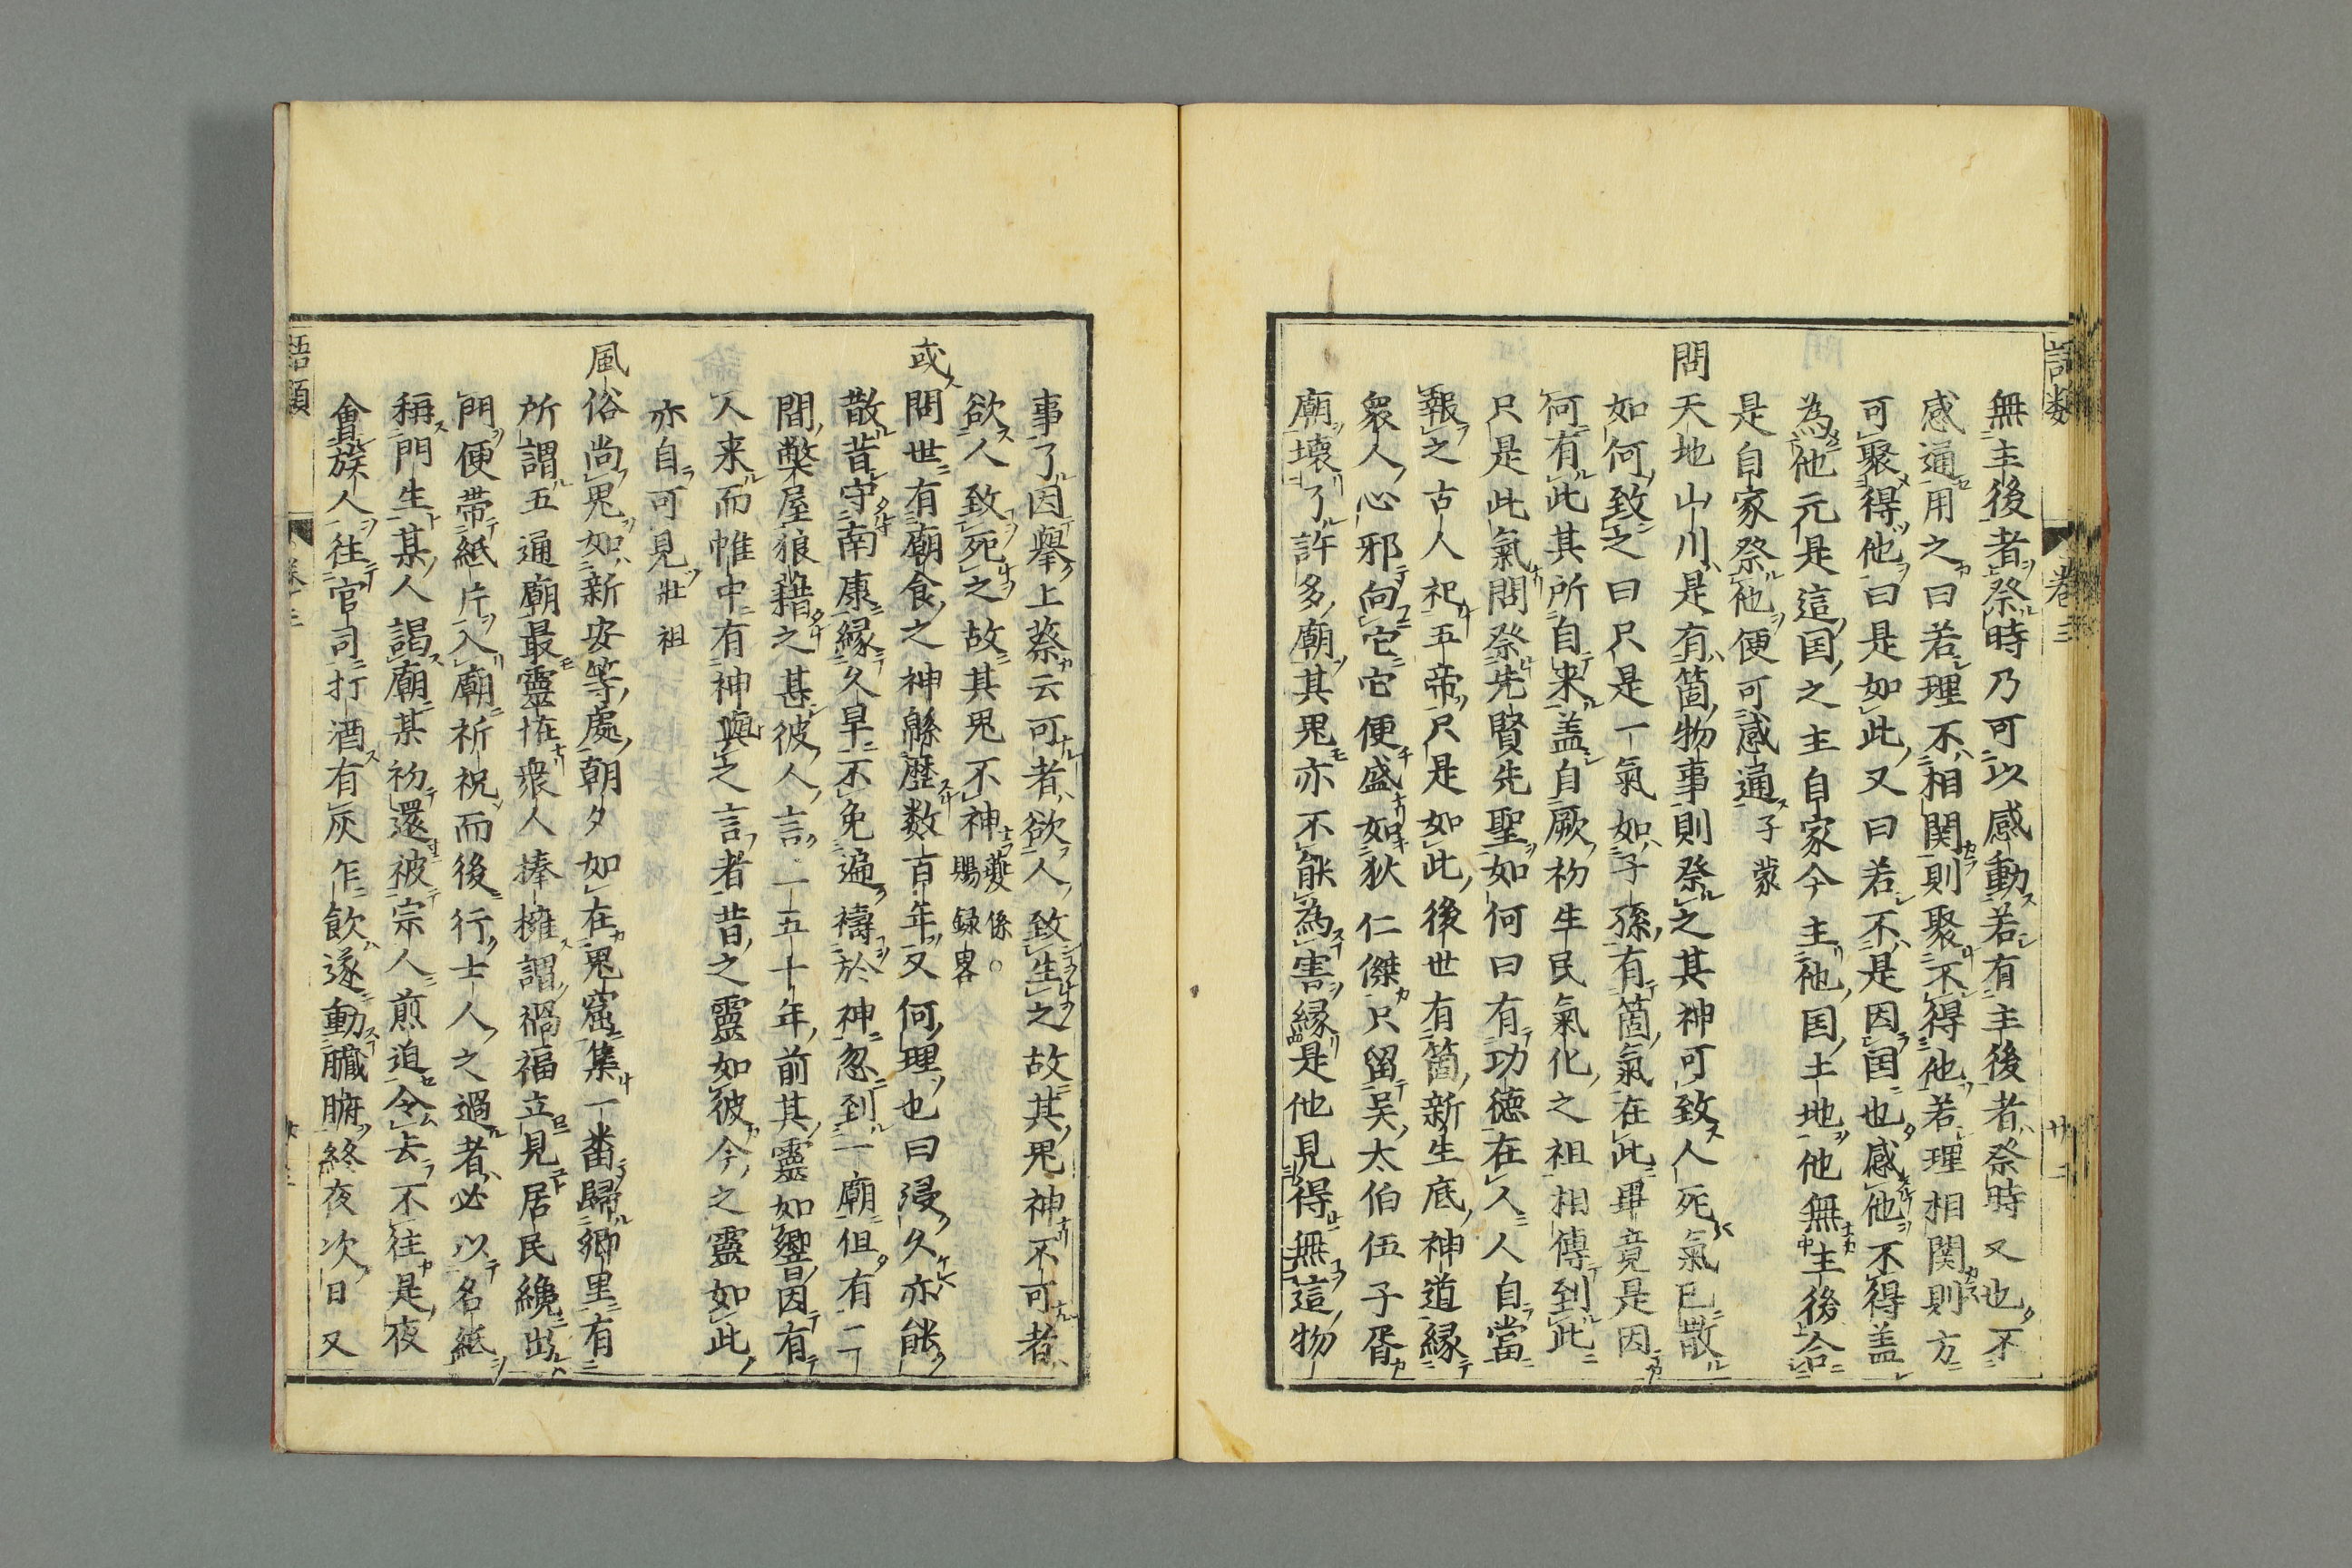 語類 卷三 廿二
無主後者祭時乃可以感動若有主後者祭時又也不
感通用之曰若理不相関則聚不得他若理相関則方
可聚得他曰是如此又曰若不是因国也感他不得盖
為他元是這国之主自家今主他国土地他無主後合
是自家祭他便可感通子蒙
問天地山川是有箇物事則祭之其神可致人死氣已散
如何致之曰只是一氣如子孫有箇氣在此畢竟是因
何有此其所自来盖自厥初生民氣化之祖相傳到此
只是此氣問祭先賢先聖如何曰有功德在人人自當
報之古人祀五帝只是如此後世有箇新生底神道縁
衆人心邪向它它便盛如狄仁傑只留吳太伯伍子胥
廟壞了許多廟其鬼亦不能為害縁是他見得無這物
事了因舉上蔡云可者欲人致生之故其鬼神不可者
欲人致死之故其鬼不神
賜録畧○
或問世有廟食之神緜歴数百年又何理也曰浸久亦能
散昔守南康縁久旱不免遍禱於神忽到一廟但有一
間弊屋狼藉之甚彼人言一五十年前其靈如響因有
人来而帷中有神與之言者昔之靈如彼今之靈如此
亦自可見壯祖
風俗尚鬼如新安等處朝夕如在鬼窟集一番歸卿里有
所謂五通廟最靈恠衆人捧擁謂禍福立見居民纔出
門便帯紙片入廟祈祝而後行士人之過者必以名紙
稱門生某人謁廟某初還被宗人煎迫令去不往是夜
會族人往官司打酒有灰乍飲遂動臓腑終夜次日又
語類